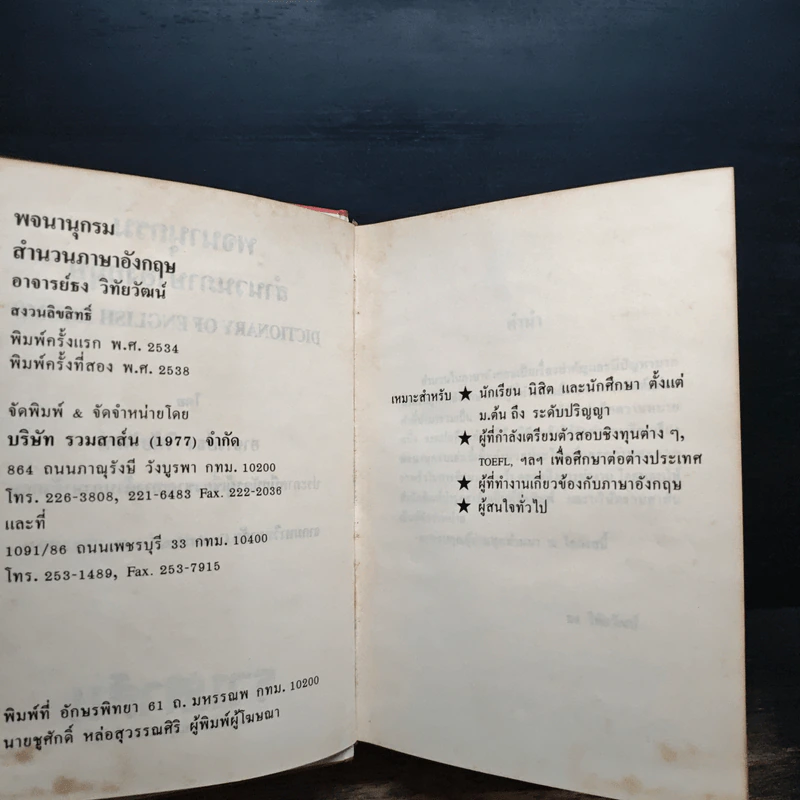 พจนานุกรม
สำนวนภาษาอังกฤษ
อาจารย์ธง วิทัยวัฒน์
สงวนลิขสิทธิ์
พิมพ์ครั้งแรก พ.ศ. 2534
พิมพ์ครั้งที่สอง พ.ศ. 2538
จัดพิมพ์ & จัดจำหน่ายโดย
บริษัท รวมสาส์น (1977) จำกัด
864 ถนนภาณุรังษี วังบูรพา กทม. 10200
โทร. 226-3808, 221-6483 Fax. 222-2036
และที่
1091/86 ถนนเพชรบุรี 33 กทม. 10400
โทร. 253-1489, Fax. 253-7915
พิมพ์ที่ อักษรพิทยา 61 ถ. มหรรณพ กทม. 10200
นายชูศักดิ์ หล่อสุวรรณศิริ ผู้พิมพ์ผู้โฆษณา
เหมาะสำหรับ ★ นักเรียน นิสิต และนักศึกษา ตั้งแต่
ม.ต้น ถึง ระดับปริญญา
★ ผู้ที่กำลังเตรียมตัวสอบชิงทุนต่าง ๆ,
TOEFL, ฯลฯ เพื่อศึกษาต่อต่างประเทศ
★ ผู้ที่ทำงานเกี่ยวข้องกับภาษาอังกฤษ
★ ผู้สนใจทั่วไป